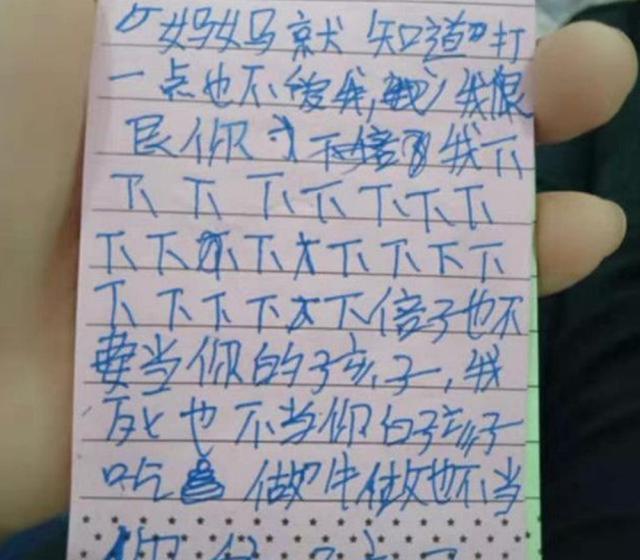 妈妈就知道打
一点也不爱我，我很
艮你 不 我下
下下下下下下下
下下下下下下下下
下下下下下下倍子也不
要当你的孩子，我
死也不当你的孩子
吃 做牛做也不当